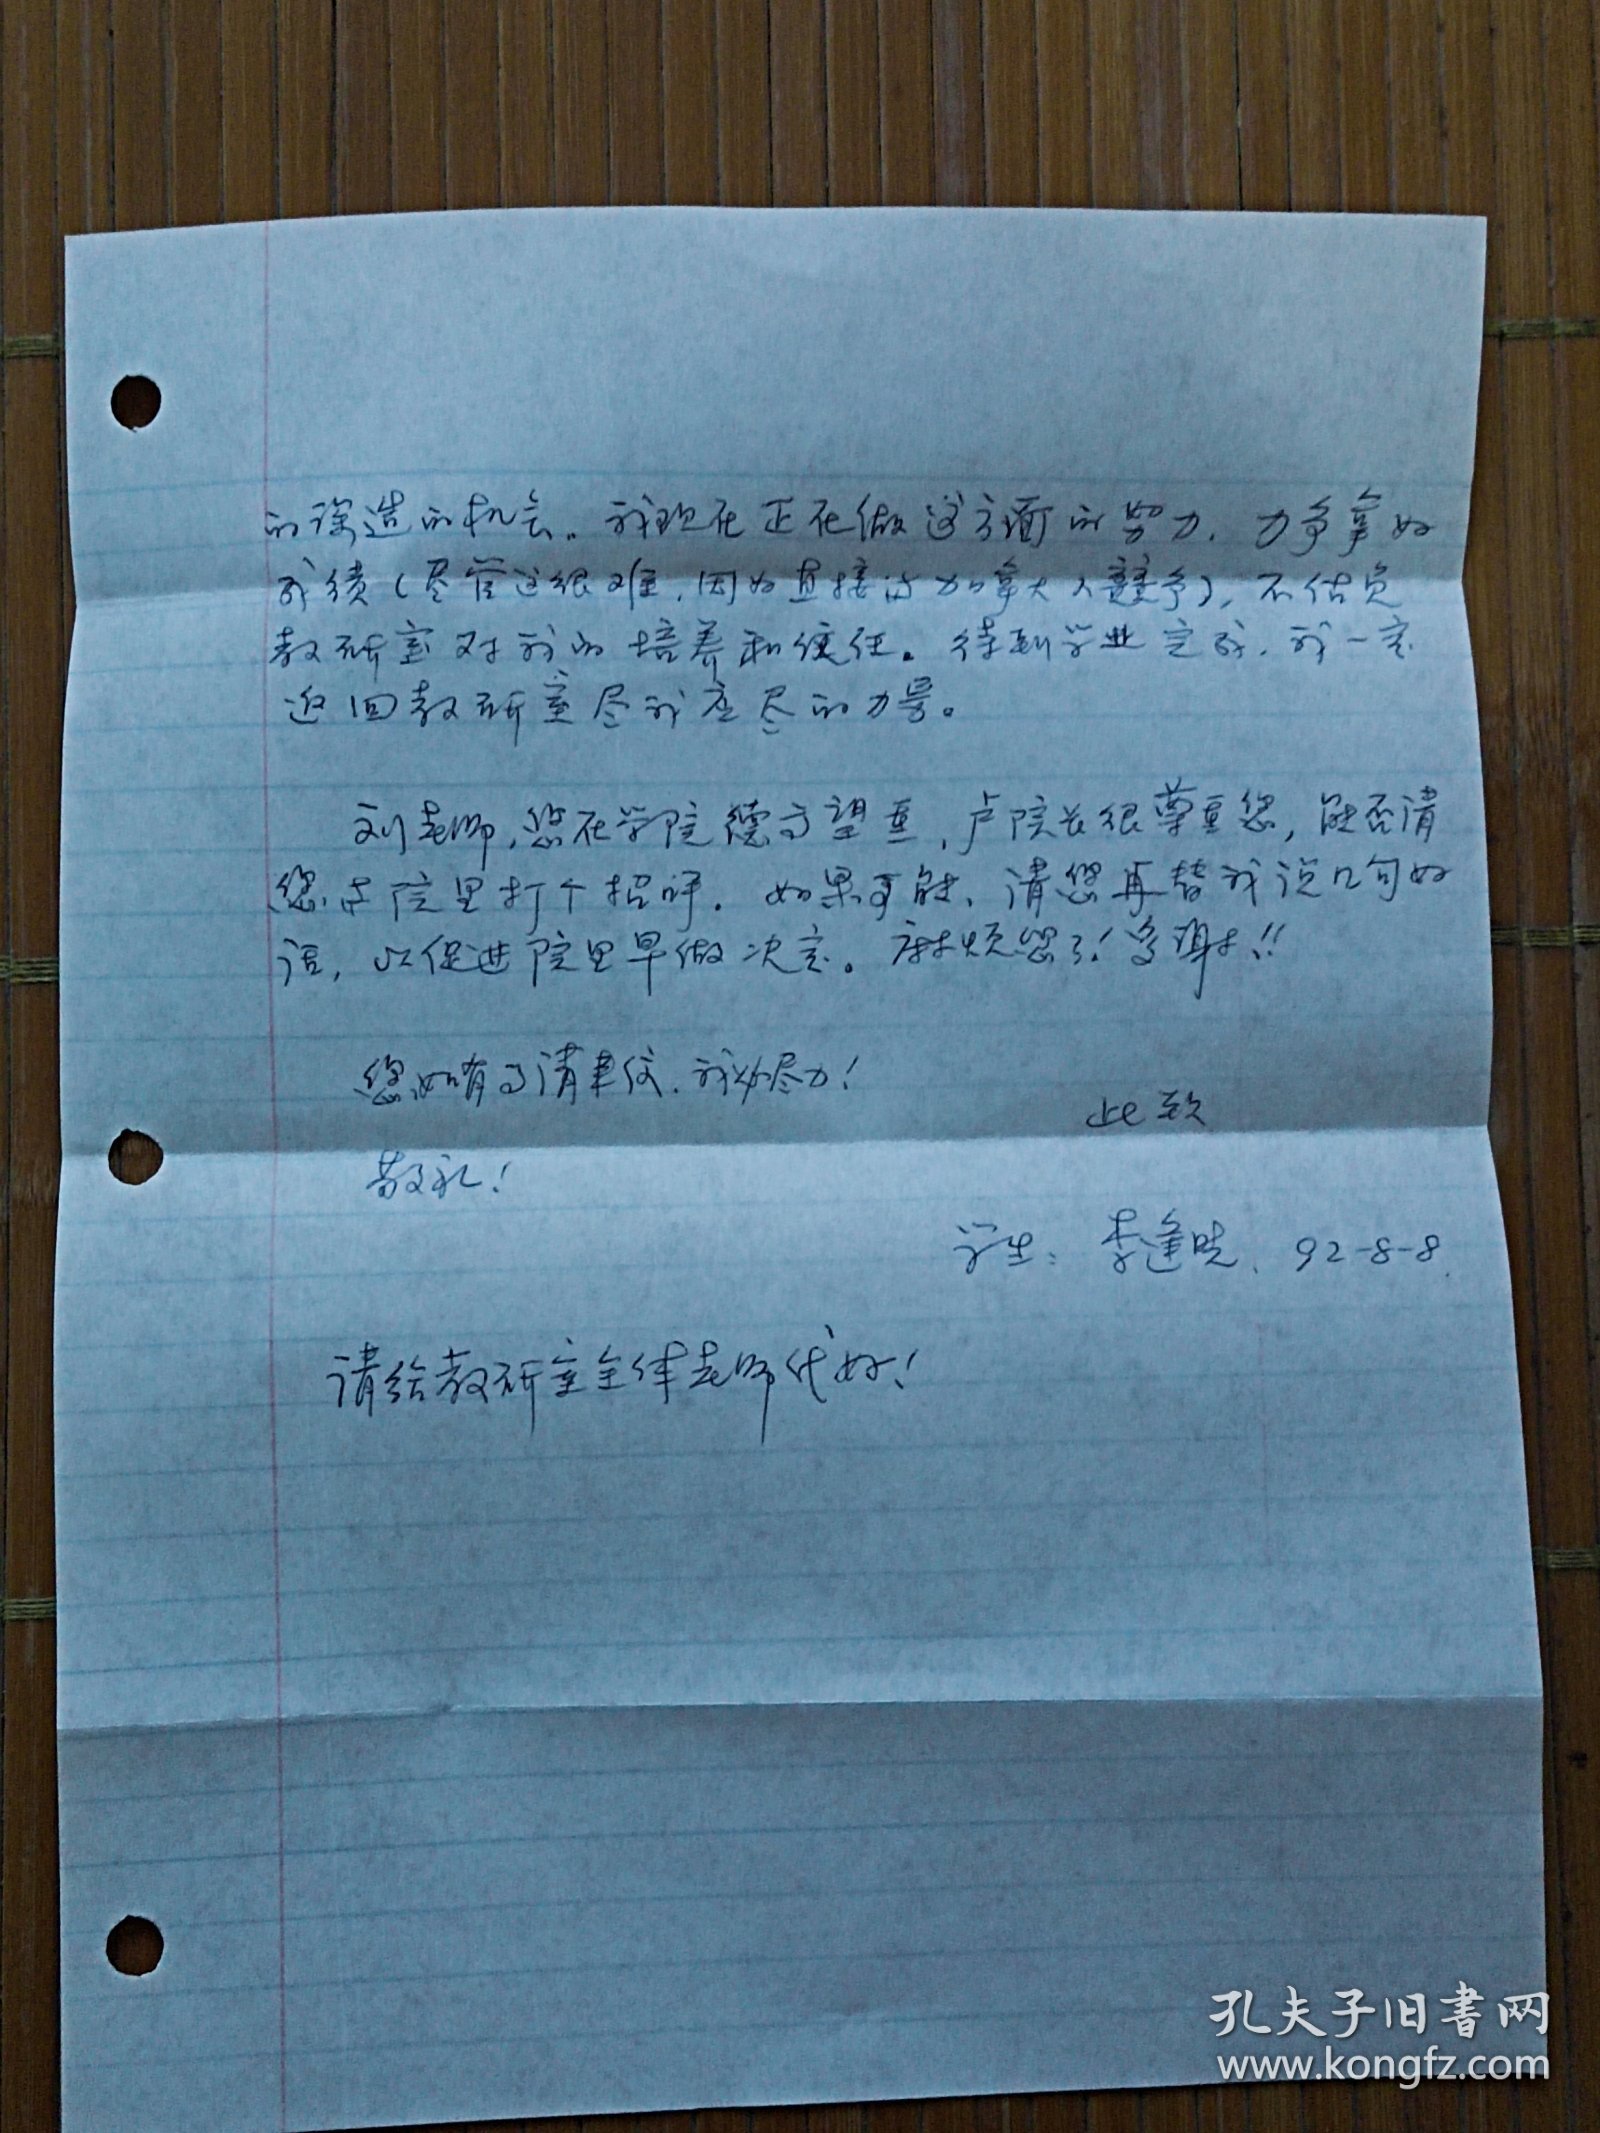 的深造的机会。我现在正在做这方面的努力，力争拿好
成绩（尽管这很难，因为直接与加拿大人竞争），不估负
教研室对我的培养和信任。待到学业完成，我一定
返回教研室尽我应尽的力量。
刘老师，您在学院德高望重，卢院长很尊重您，能否请
您与院里打个招呼。如果可能，请您再替我说几句好
话，以促进院里早做决定。麻烦您了！多谢！！
您如有事请来信，我必尽力！
此致
敬礼！
学生：李逢 92-8-8.
请给教研室全体老师代好！
孔夫子旧书网
www.kongfz.com